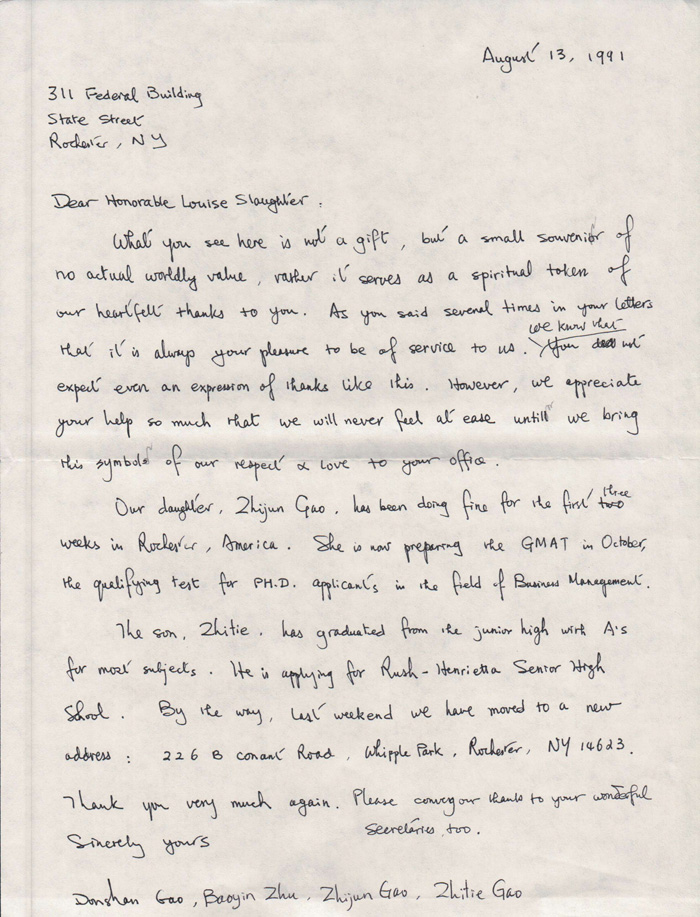 August 13, 1991
311 Federal Building
State Street
Rochester, NY
Dear Honorable Louise Slaughter:
What you see here is not a gift, but a small souvenir of
no actual worldly value, rather it serves as a spiritual token of
our heartfelt thanks to you. As you said several times in your letters
we know that
that it is always your pleasure to be of service to us. You does not
expect even an expression of thanks like this. However, we appreciate
your help so much that we will never feel at ease untill we bring
this symbol of our respect & love to your office.
three
Our daughter, Zhijun Gao, has been doing fine for the first two
weeks in Rochester, America. She is now preparing the GMAT in October,
the qualifying test for PH.D. applicants in the field of Business Management.
The son, Zhitie, has graduated from the junior high with A's
for most subjects. He is applying for Rush-Henrietta Senior High
Shool. By the way, last weekend we have moved to a new
address: 226 B Conant Road, Whipple Park, Rochester, NY 14623.
Thank you very much again. Please convey our thanks to your wonderful
secretaries, too.
Sincerely yours
Donshan Gao, Baoyin Zhu, Zhijun Gao, Zhitie Gao